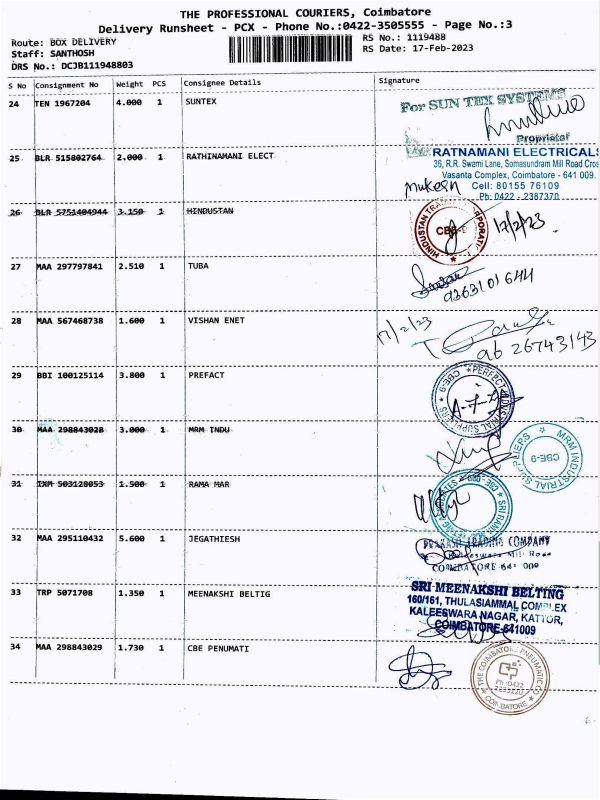 THE PROFESSIONAL COURIERS, Coimbatore
Delivery Runsheet - PCX - Phone No.:0422-3505555 - Page No.:3
Route: BOX DELIVERY
Staff: SANTHOSH
DRS No.: DCJB111948803
RS No.: 1119488
RS Date: 17-Feb-2023
S No Consignment No Weight PCS Consignee Details Signature
24 TEN 1967204 4.000 1 SUNTEX
For SUN TEX SYSTEMS
Proprietor
25 BLR 515802764 2.000 1 RATHINAMANI ELECT
RATNAMANI ELECTRICALS
36, R.R. Swami Lane, Somasundram Mill Road Cros
Vasanta Complex, Coimbatore - 641 009.
Cell: 80155 76109
Ph: 0422 - 2387370
Mukesh
26 BLR 5751404944 3.150 1 HINDUSTAN
17/2/23
27 MAA 297797841 2.510 1 TUBA
9363101644
28 MAA 567468738 1.600 1 VISHAN ENET
17/2/23
29 BBI 100125114 3.800 1 PREFACT
30 MAA 298843028 3.000 1 MRM INDU
MRM INDUSTRIAL SUPPLIERS
CBE-9
31 IXM 503128053 1.500 1 RAMA MAR
32 MAA 295110432 5.600 1 JEGATHIESH
PRAKASH TRADING COMPANY
COIMBATORE 641 009
33 TRP 5071708 1.350 1 MEENAKSHI BELTIG
SRI MEENAKSHI BELTING
160/161, THULASIAMMAL COMPLEX
KALEESWARA NAGAR, KATTOR,
COIMBATORE-641009
34 MAA 298843029 1.730 1 CBE PENUMATI
THE COIMBATORE PNEUMATIC CO
COIMBATORE